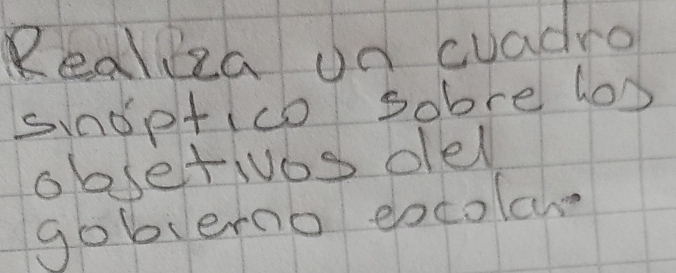 Realiza un cuadro
sinóptico sobre los
objetivos del
gobierno escolar.